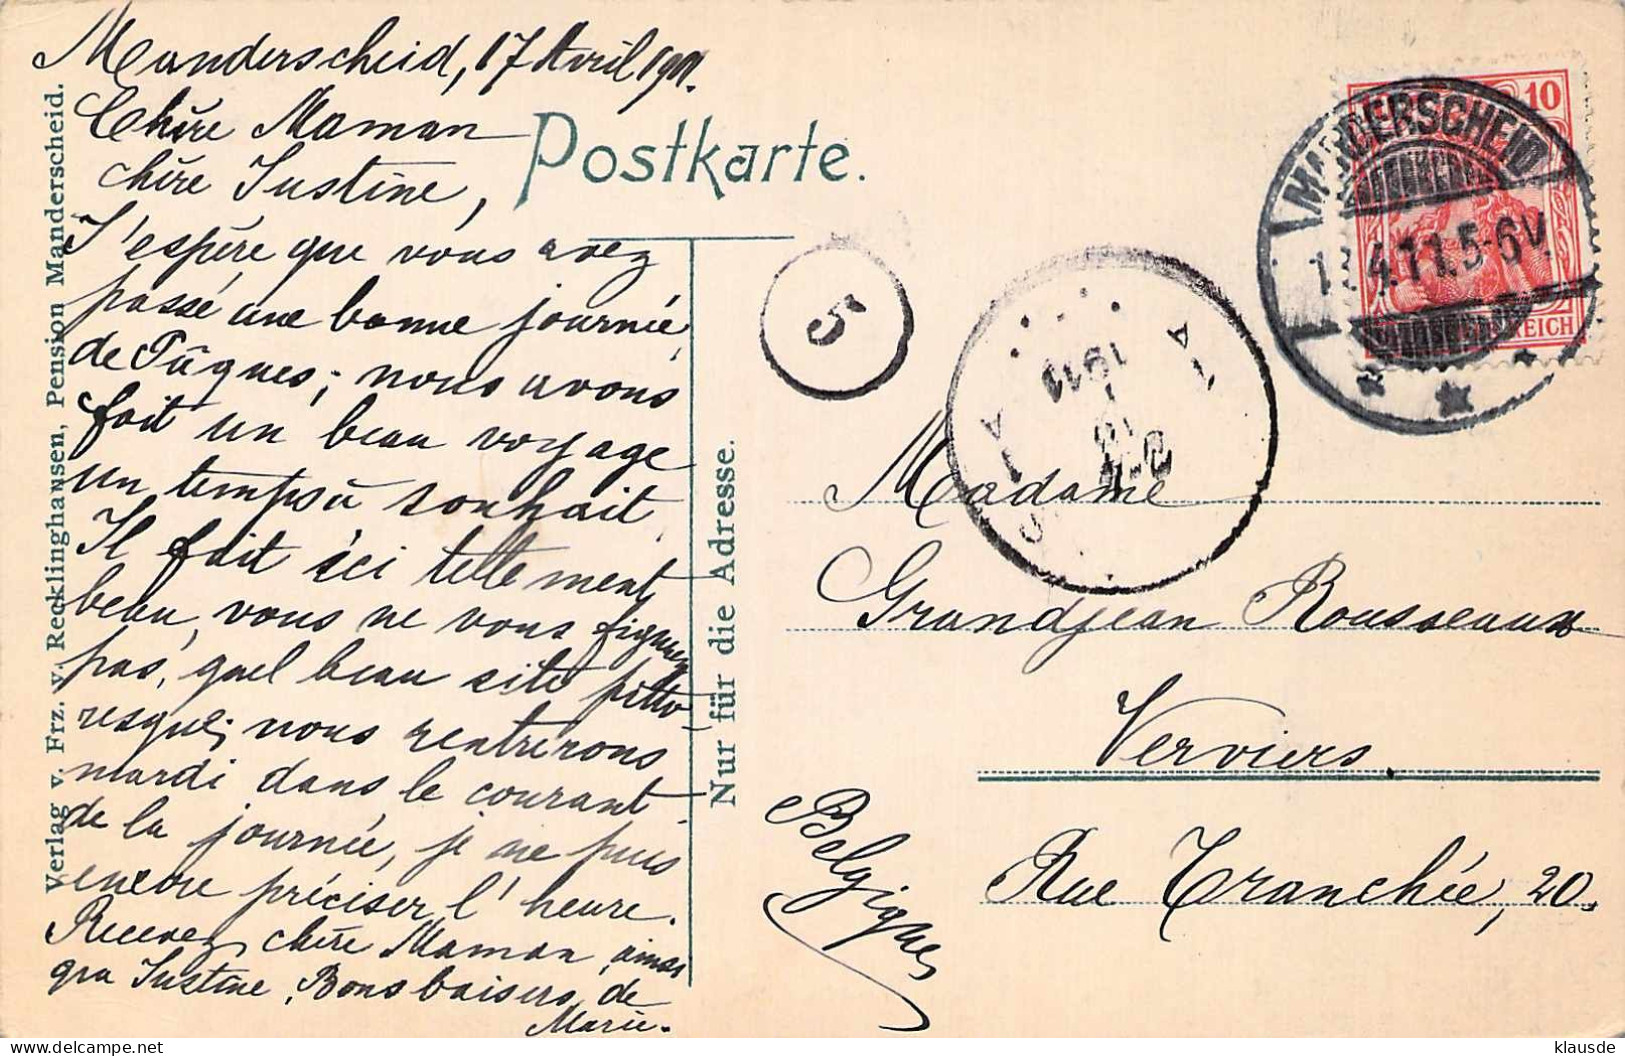 Manderscheid, 17 Avril 1911.
Chère Maman
chère Justine,
J'espère que vous avez
passé une bonne journée
de Pâques; nous avons
fait un beau voyage
un temps à souhait
Il fait ici tellement
beau, vous ne vous figurez
pas, quel beau site pitto-
resque; nous rentrerons
mardi dans le courant
de la journée, je ne puis
encore préciser l'heure.
Recevez, chère Maman, ainsi
que Justine, Bons baisers de
Marie.
Verlag v. Frz. v. Recklinghausen, Pension Manderscheid.
Postkarte.
Nur für die Adresse.
5
1911
MANDERSCHEID
4.11.5-6V.
10
REICH
Madame
Grandjean Rousseaux
Verviers.
Rue Tranchée, 20.
Belgique
klausde
delcampe.net